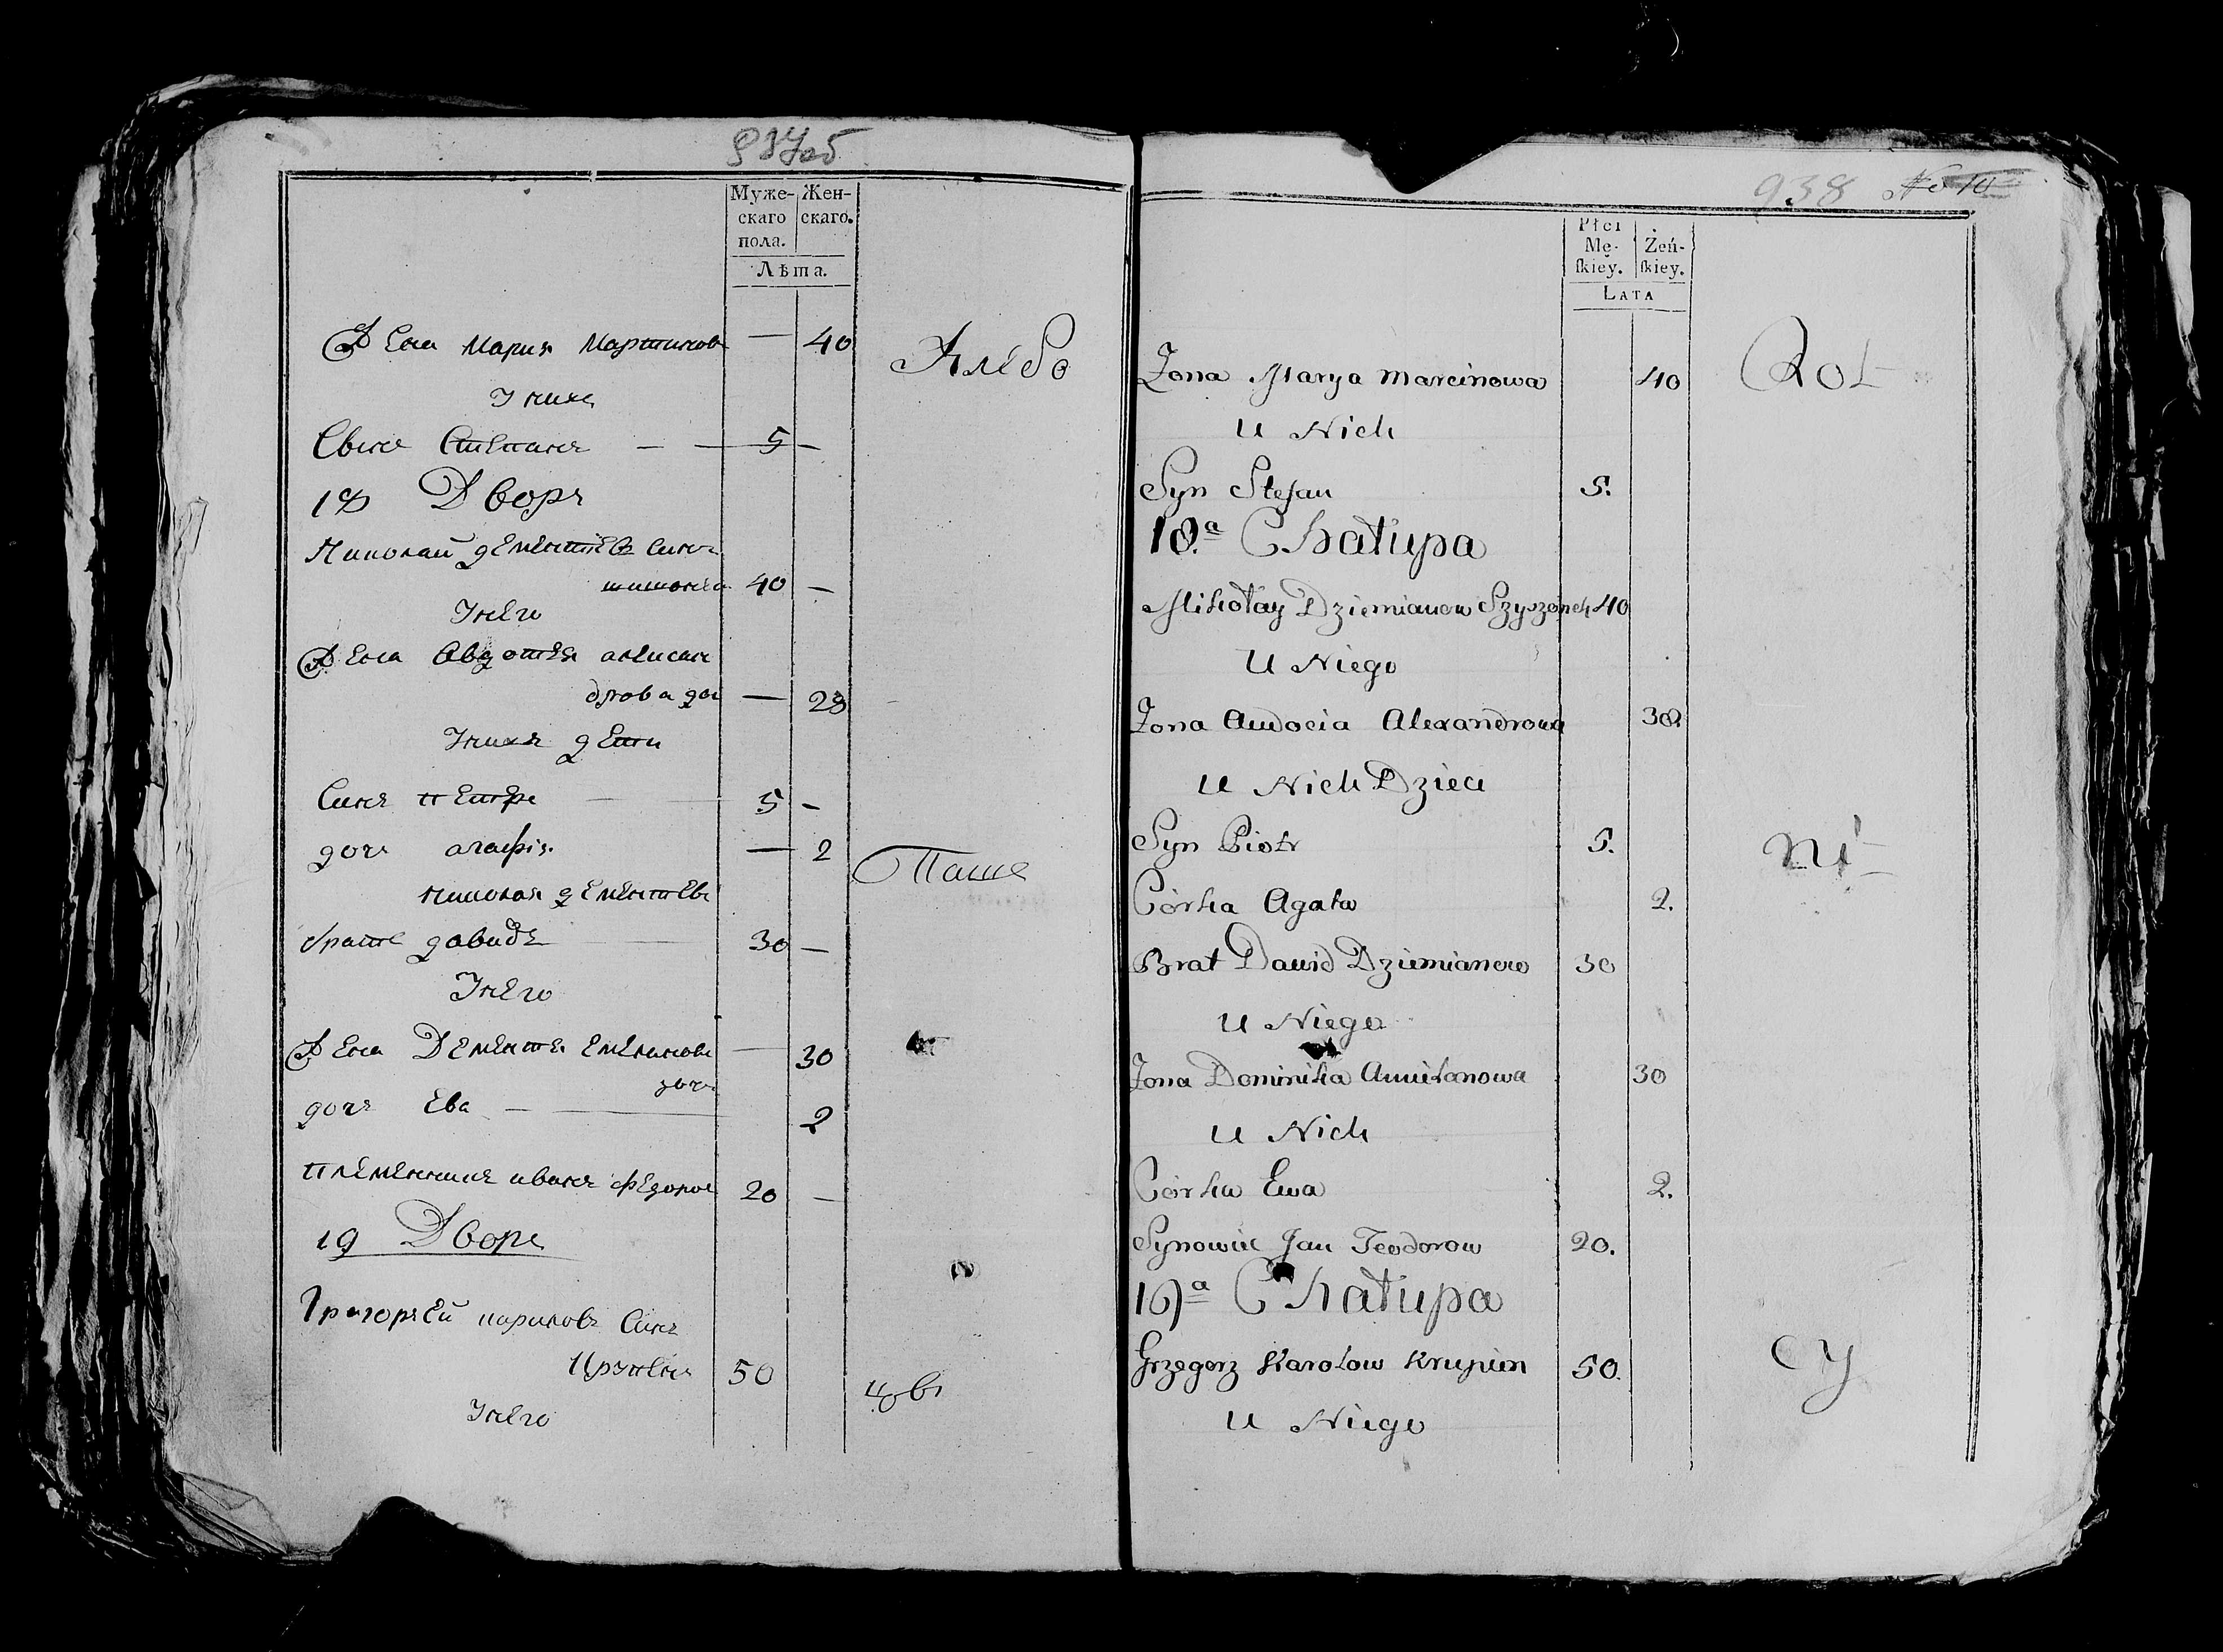 937об
Муже- Жен-
скаго скаго.
пола.
Лѣта.
Жена Мария Мартинов — 40
Хлебо
У них
Сынъ Степанъ — 5 —
18 Дворъ
Николай Дементьев Синъ
шишонок 40 —
У него
Жена Авдотья алексан
дрова дочь — 28
У нихъ дети
Синъ петръ 5 —
дочь агафія — 2
Паше
николая Дементьев
братъ давидъ 30 —
У него
Жена Дементя Емелянов — 30
дочь
дочь Ева — 2
племянникъ иванъ федоров 20 —
19 Дворъ
Григорьей карилов Синъ
Крупеня 50
цовъ
У него
938 No 10
Płci
Mę- Żeń-
skiey. skiey.
LATA
Żona Marya Marcinowa 40
Rol
U Nich
Syn Stefan 5.
18.a Chałupa
Mikołay Dziemianow Szyszonek 40
U Niego
Żona Audocia Alexandrowa 30
U Nich Dzieci
Syn Piotr 5.
ni
Córka Agata 2.
Brat Dawid Dziemianow 30
U Niego
Żona Dominika Amilianowa 30
U Nich
Córka Ewa 2.
Synowiec Jan Teodorow 20.
19a Chałupa
Grzegorz Karolow Krupien 50.
cy
U Niego